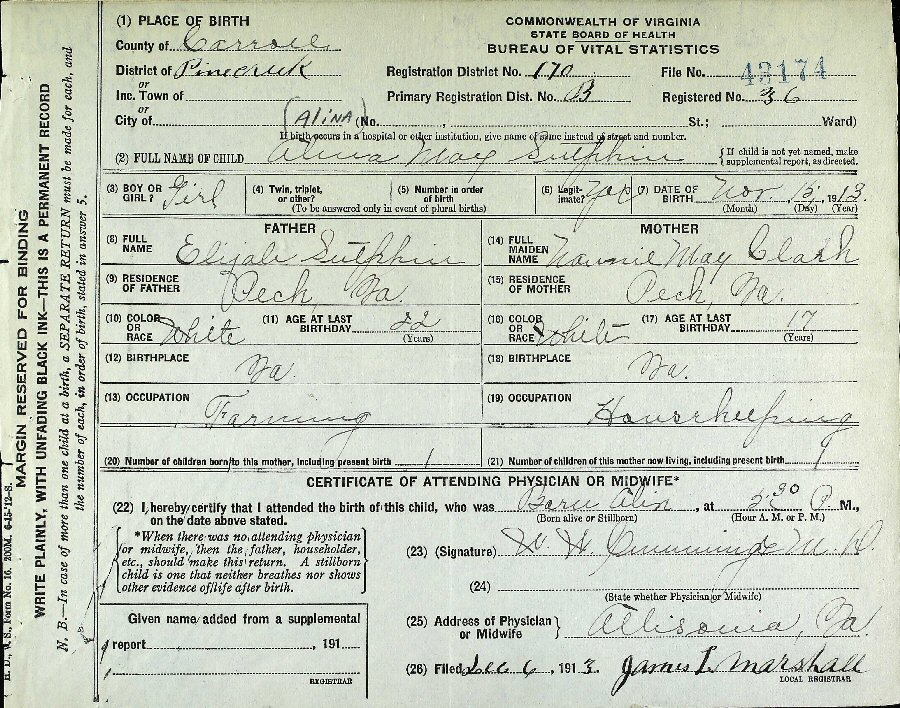 (1) PLACE OF BIRTH
County of Carroll
District of Pinecreek
or
Inc. Town of
or
City of
COMMONWEALTH OF VIRGINIA
STATE BOARD OF HEALTH
BUREAU OF VITAL STATISTICS
Registration District No. 170 File No. 43174
Primary Registration Dist. No. B Registered No. 36
(ALINA) (No. , St.; Ward)
If birth occurs in a hospital or other institution, give name of same instead of street and number.
(2) FULL NAME OF CHILD Alina May Sutphin { If child is not yet named, make supplemental report, as directed.
(3) BOY OR GIRL? Girl (4) Twin, triplet, or other? (5) Number in order of birth (To be answered only in event of plural births) (6) Legitimate? Yes (7) DATE OF BIRTH Nov 15 1913. (Month) (Day) (Year)
FATHER
(8) FULL NAME Elijah Sutphin
(9) RESIDENCE OF FATHER Peck, Va.
(10) COLOR OR RACE White (11) AGE AT LAST BIRTHDAY 22 (Years)
(12) BIRTHPLACE Va.
(13) OCCUPATION Farming
MOTHER
(14) FULL MAIDEN NAME Nannie May Clark
(15) RESIDENCE OF MOTHER Peck, Va.
(16) COLOR OR RACE White (17) AGE AT LAST BIRTHDAY 17 (Years)
(18) BIRTHPLACE Va.
(19) OCCUPATION Housekeeping
(20) Number of children born to this mother, including present birth 1
(21) Number of children of this mother now living, including present birth 1
CERTIFICATE OF ATTENDING PHYSICIAN OR MIDWIFE*
(22) I hereby certify that I attended the birth of this child, who was Born Aliv, at 2:30 P M.,
on the date above stated. (Born alive or Stillborn) (Hour A. M. or P. M.)
*When there was no attending physician
or midwife, then the father, householder,
etc., should make this return. A stillborn
child is one that neither breathes nor shows
other evidence of life after birth.
(23) (Signature) W. W. Cummings M D
(24)
(State whether Physician or Midwife)
Given name added from a supplemental
report , 191
REGISTRAR
(25) Address of Physician or Midwife } Allisonia, Va.
(26) Filed Dec 6, 1913. James L. Marshall
LOCAL REGISTRAR
H. D., V. S., Form No. 16. 200M. 6-15-12-S.
MARGIN RESERVED FOR BINDING
WRITE PLAINLY, WITH UNFADING BLACK INK—THIS IS A PERMANENT RECORD
N. B.—In case of more than one child at a birth, a SEPARATE RETURN must be made for each, and
the number of each, in order of birth, stated in answer 5.